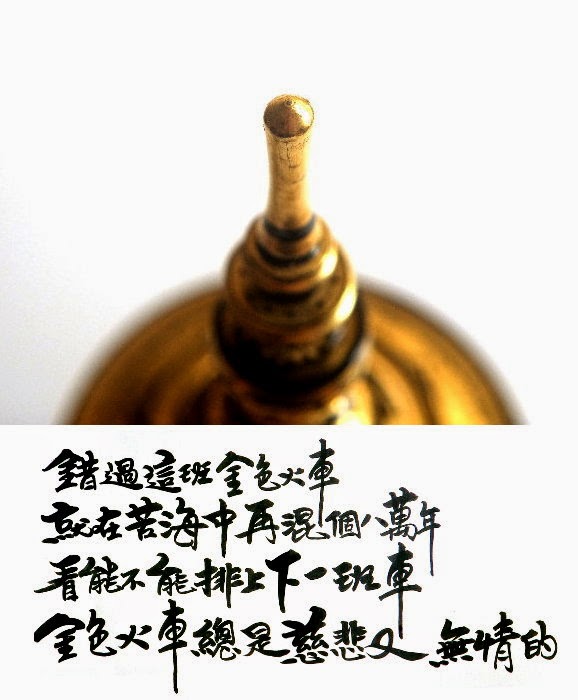 錯過這班金色火車
就在苦海中再混個八萬年
看能不能排上下一班車
金色火車總是慈悲又無情的